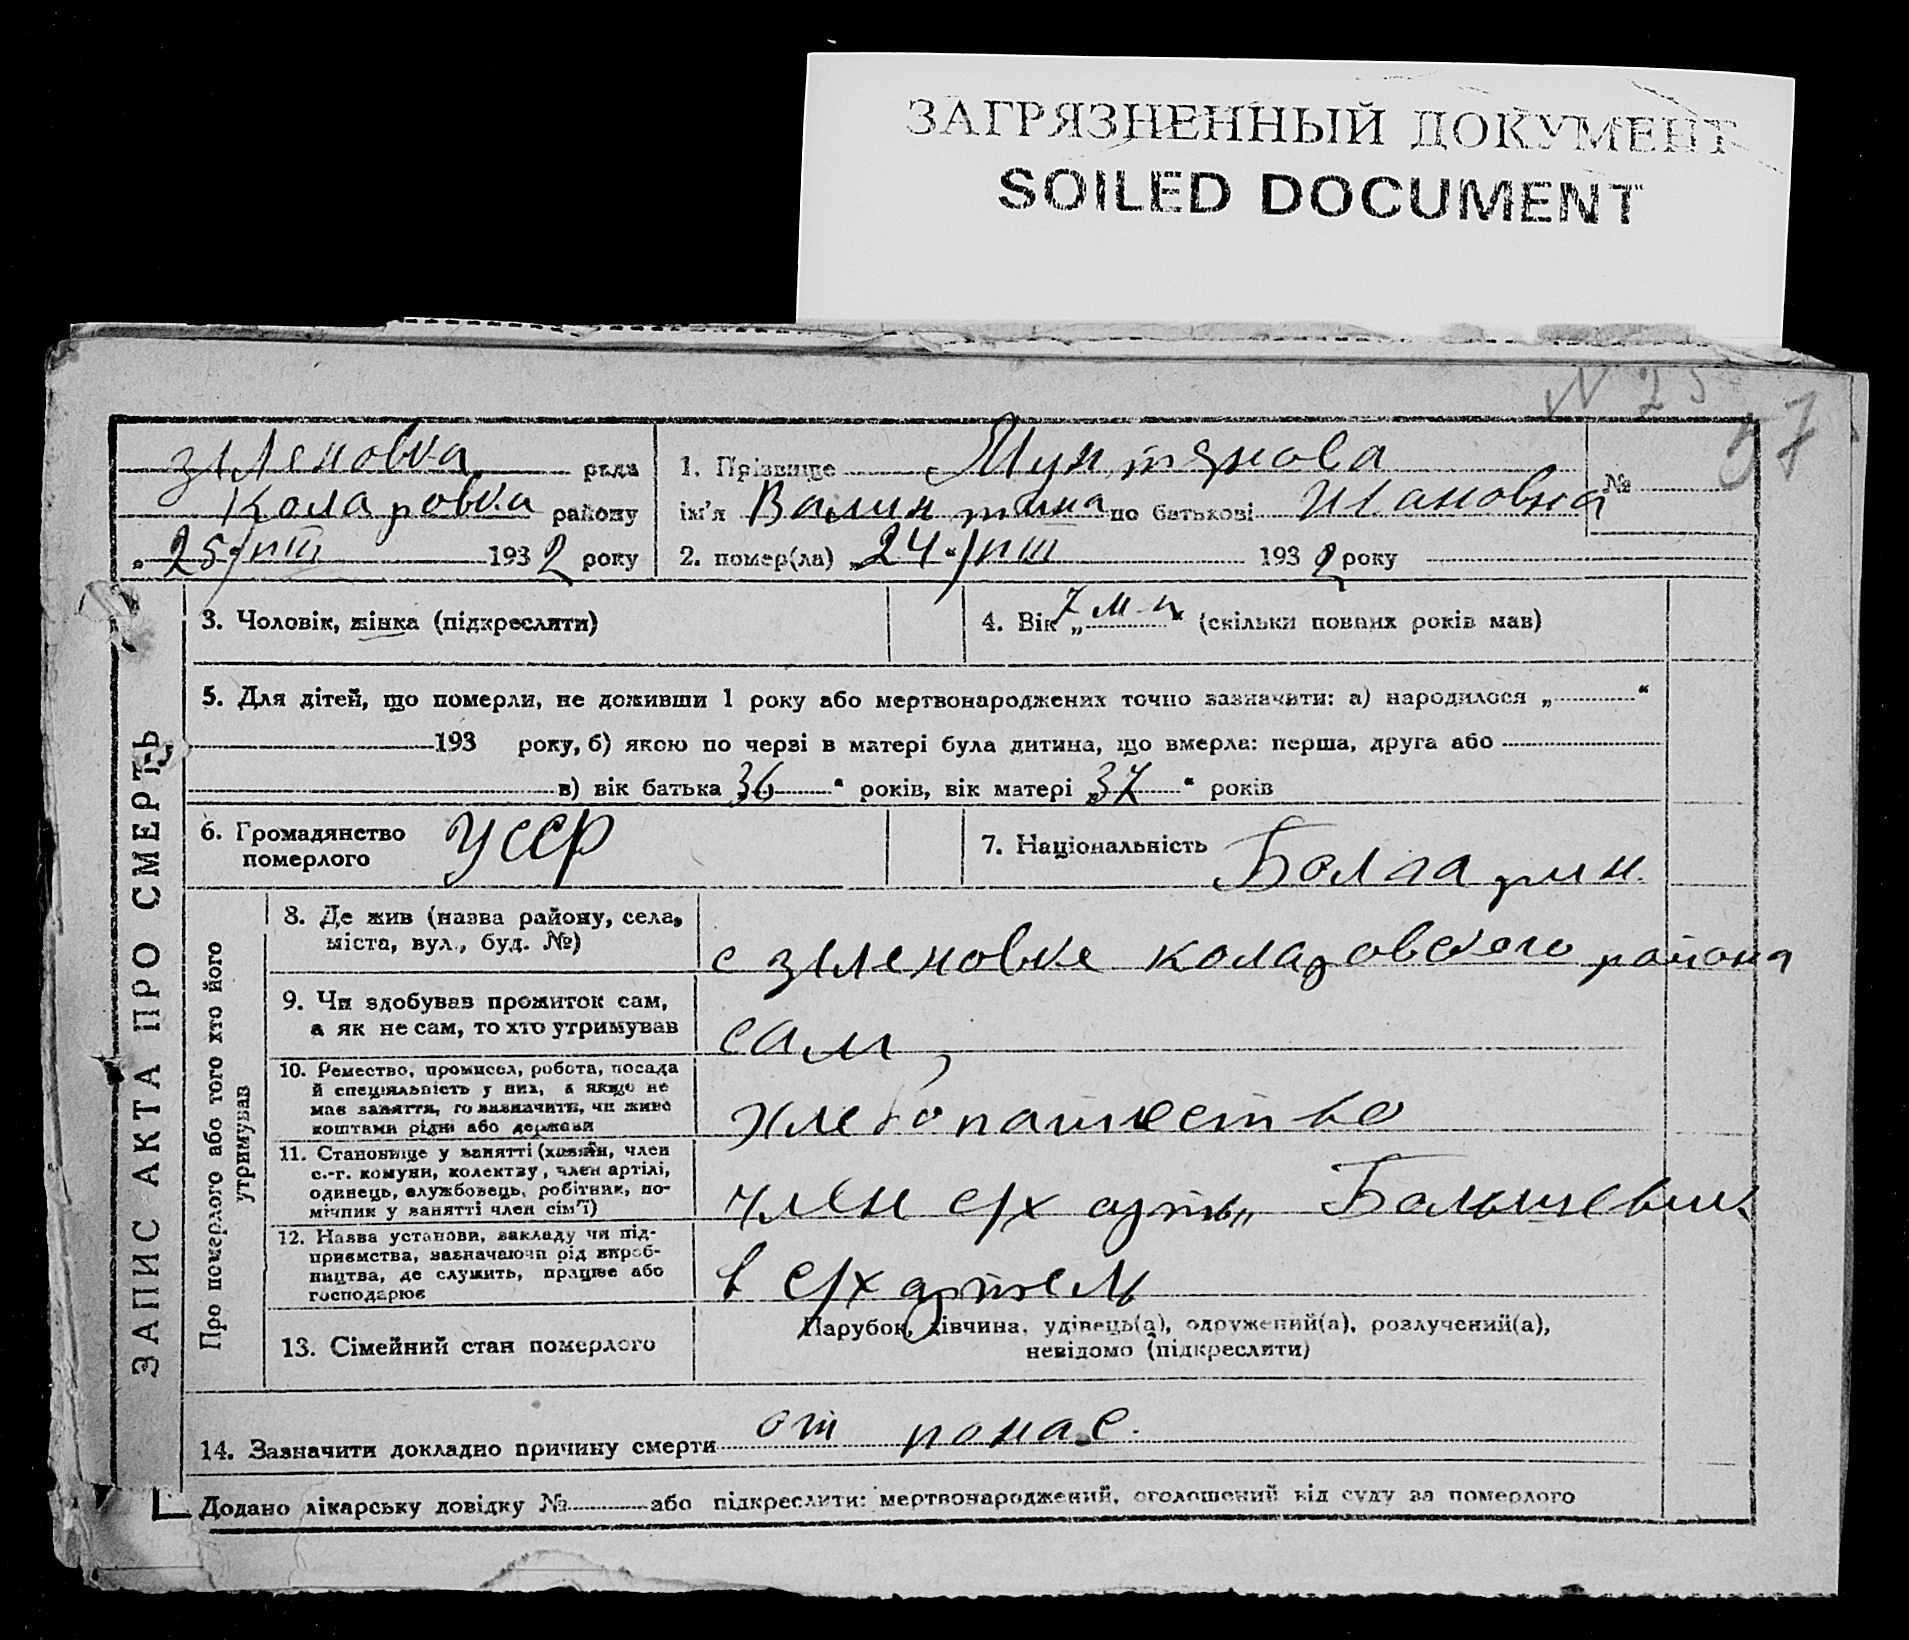 ЗАГРЯЗНЕННЫЙ ДОКУМЕНТ
SOILED DOCUMENT
N 25
37
зіленовка рада
Коларовка району
„25/VIII 1932 року
1. Прізвище Мунтянова
ім'я Валинтина по батькові Ивановна
№
2. помер(ла) „24“/VIII 1932 року
ЗАПИС АКТА ПРО СМЕРТЬ
3. Чоловік, жінка (підкреслити)
4. Вік „7 м-ц“ (скільки повних років мав)
5. Для дітей, що померли, не доживши 1 року або мертвонароджених точно зазначити: а) народилося „ “
193 року, б) якою по черзі в матері була дитина, що вмерла: перша, друга або
в) вік батька „36“ років, вік матері „37“ років
6. Громадянство
померлого
УССР
7. Національність Болгарин
Про померлого або того хто його
утримував
8. Де жив (назва району, села,
міста, вул., буд. №)
с зіленовке коларовского района
9. Чи здобував прожиток сам,
а як не сам, то хто утримував
сам,
10. Ремество, промисел, робота, посада
й спеціяльність у них, а якщо не
має заняття, то зазначити, чи живе
коштами рідні або держави
Хлебопашество
11. Становище у занятті (хазяїн, член
с.-г. комуни, колектву, член артілі,
одинець, службовець, робітник, по-
мічник у занятті член сім'ї)
член с/х арть „Большевик
12. Назва установи, закладу чи під-
приємства, зазначаючи рід вироб-
ництва, де служить, працює або
господарює
в с/х артель
13. Сімейний стан померлого
Парубок, дівчина, удівець(а), одружений(а), розлучений(а),
невідомо (підкреслити)
14. Зазначити докладно причину смерти от понас.
Додано лікарську довідку № або підкреслити: мертвонароджений, оголошений від суду за померлого